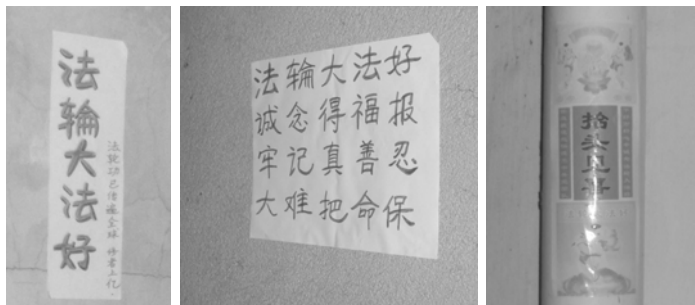 法輪大法好
法轮功已传遍全球 修者上亿.
法輪大法好
诚念得福报
牢记真善忍
大难把命保
抬头见喜